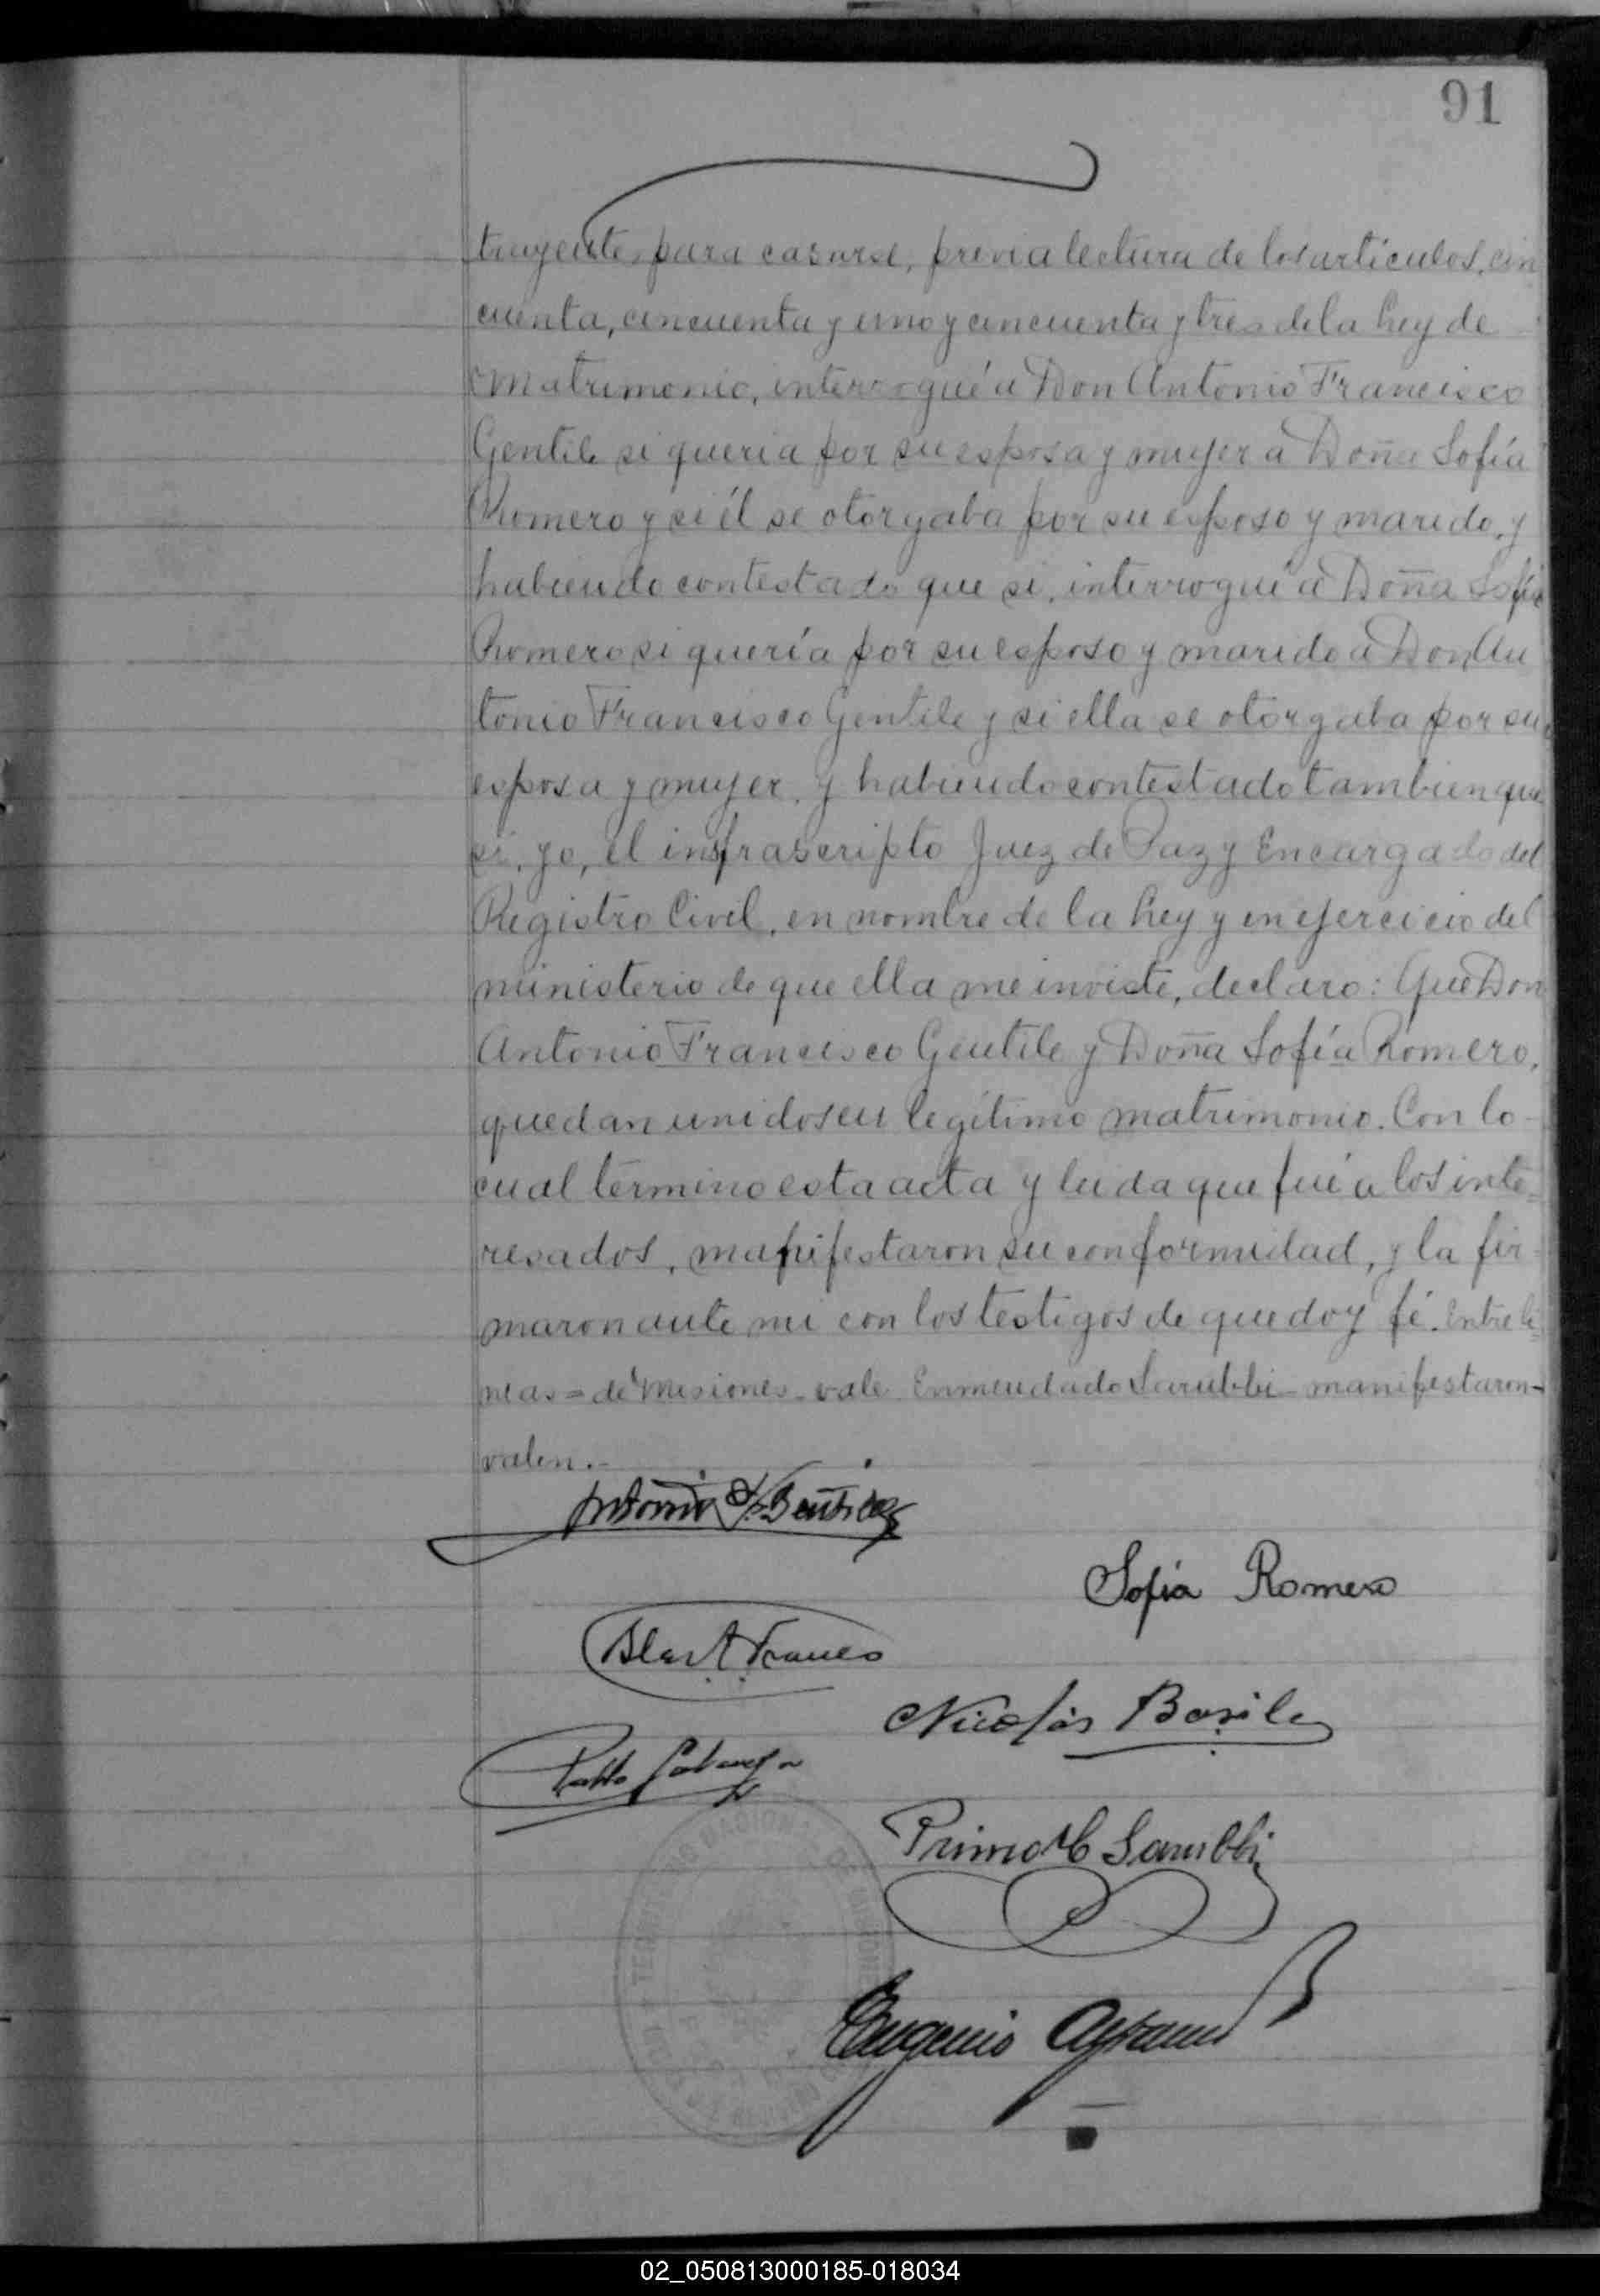 91
trayentes para casarse, previa lectura de los artículos, cin
cuenta, cincuenta y uno y cincuenta y tres de la Ley de
Matrimonio, interrogué a Don Antonio Francisco
Gentile si queria por su esposa y mujer a Doña Sofía
Romero y si él se otorgaba por su esposo y marido, y
habiendo contestado que si, interrogué a Doña Sofía
Romero si quería por su esposo y marido a Don An
tonio Francisco Gentile y si ella se otorgaba por su
esposa y mujer, y habiendo contestado tambien que
si, yo, el infrascripto Juez de Paz y Encargado del
Registro Civil, en nombre de la Ley y en ejercicio del
ministerio de que ella me inviste, declaro: Que Don
Antonio Francisco Gentile y Doña Sofía Romero,
quedan unidos en legítimo matrimonio. Con lo
cual termino esta acta y leida que fué a los inte=
resados, manifestaron su conformidad, y la fir
maron ante mi con los testigos de que doy fé. Entre li
neas = de Misiones - vale Enmendado Sarubbi - manifestaron -
valen.-
Antonio F. Gentile
Sofía Romero
Blas A. Franco
Nicolás Basile
Pablo
Primo C Sarubbi
Eugenio
02_050813000185-018034